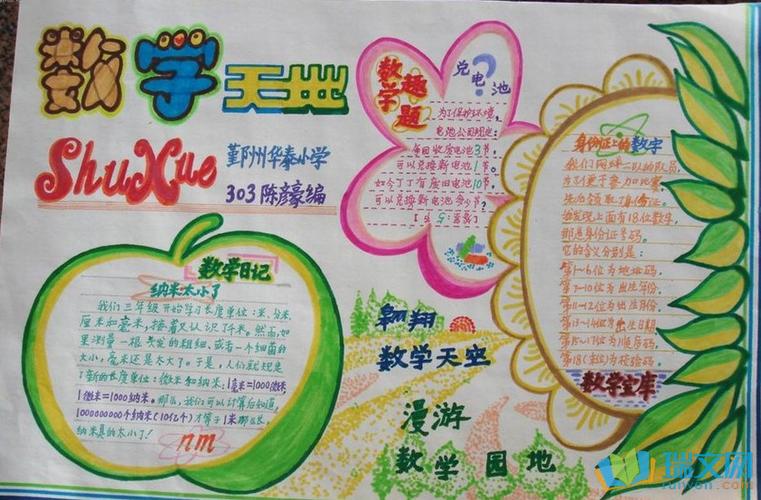 数学天地
ShuXue
鄞州华泰小学
303 陈豪编
数学趣题
兑电池
为了保护环境，
电池公司规定：
每回收废电池3节，
可以兑换新电池1节。
如今丁丁有废旧电池10节，
可以兑换新电池多少节？
（答案：5节）
身份证上的数字
我们网球二队的队员，
为了便于参加比赛，
先后领取了身份证。
我发现上面有18位数字，
那是身份证号码。
它的含义分别是：
第1~6位为地址码。
第7~10位为出生年份。
第11~12位为出生月份。
第13~14位为出生日期。
第15~17位为顺序码。
第18(末位)为校验码。
数学宝库
数学日记
纳米太小了
我们三年级开始学习长度单位：米、分米、
厘米和毫米，接着又认识了千米。然而，如
果测量一根头发的粗细，或者一个细菌的
大小，毫米还是太大了。于是，人们就规定
了新的长度单位：微米和纳米。1毫米=1000微米，
1微米=1000纳米。那么，我们可以计算后知道，
1000000000个纳米(10亿个)才等于1米那么长。
纳米真的太小了！
nm
翱翔
数学天空
漫游
数学园地
瑞文网
ruiwen.com